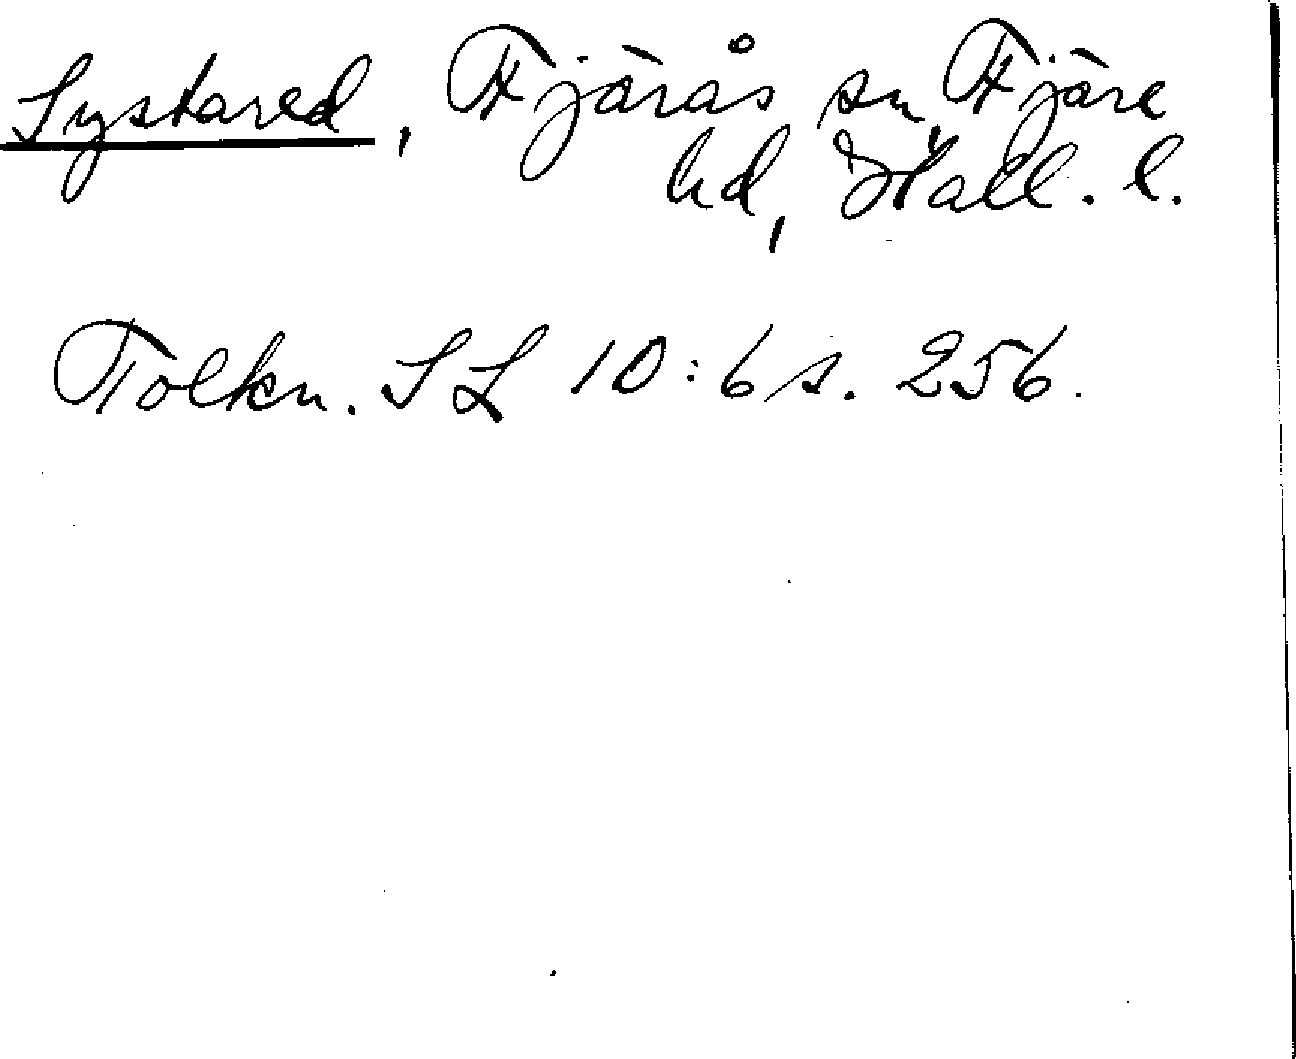 Systared, Fjärås sn, Fjäre
hd, Hall. l.
Tolkn. SL 10:6 s. 256.